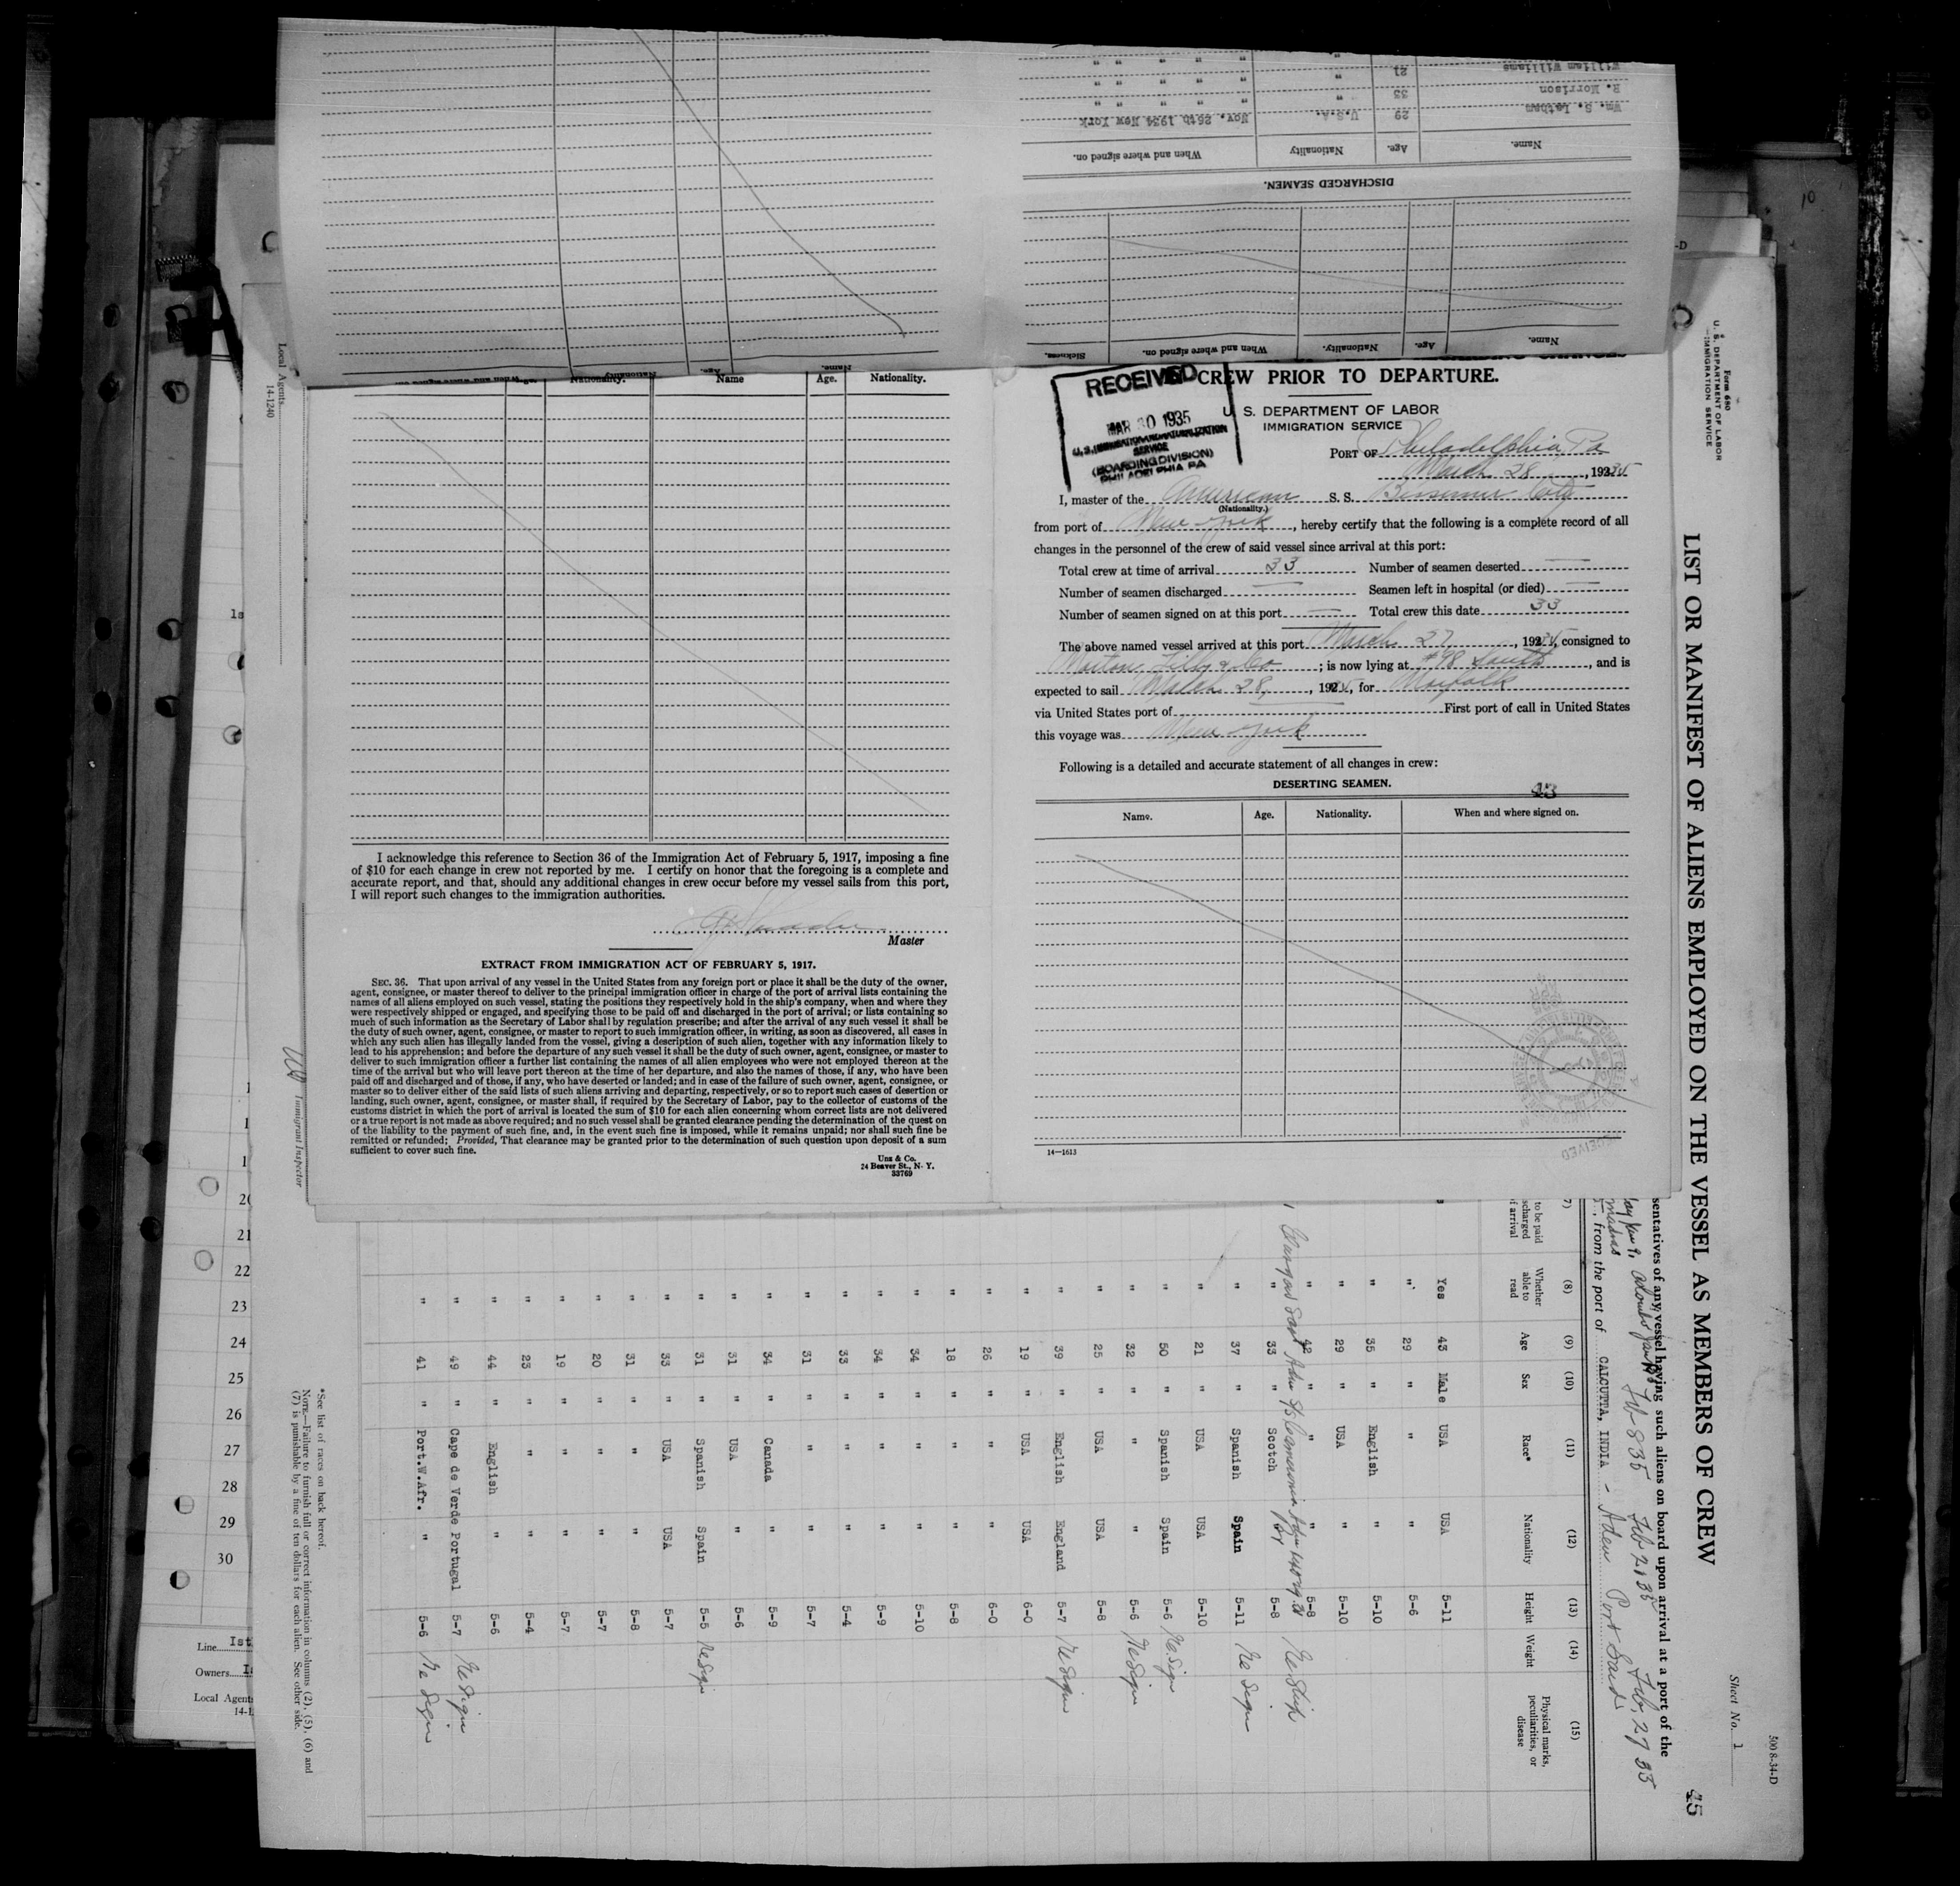 Wm. S. Latham 29 U.S.A. Nov. 26th 1934 New York
R. Morrison 33 " " " " " "
William Williams 21 " " " " " "
Name. Age. Nationality When and where signed on.
DISCHARGED SEAMEN.
Name. Age. Nationality. When and where signed on. Sickness.
Nationality. Name Age. Nationality.
I acknowledge this reference to Section 36 of the Immigration Act of February 5, 1917, imposing a fine
of $10 for each change in crew not reported by me. I certify on honor that the foregoing is a complete and
accurate report, and that, should any additional changes in crew occur before my vessel sails from this port,
I will report such changes to the immigration authorities.
Master
EXTRACT FROM IMMIGRATION ACT OF FEBRUARY 5, 1917.
SEC. 36. That upon arrival of any vessel in the United States from any foreign port or place it shall be the duty of the owner,
agent, consignee, or master thereof to deliver to the principal immigration officer in charge of the port of arrival lists containing the
names of all aliens employed on such vessel, stating the positions they respectively hold in the ship's company, when and where they
were respectively shipped or engaged, and specifying those to be paid off and discharged in the port of arrival; or lists containing so
much of such information as the Secretary of Labor shall by regulation prescribe; and after the arrival of any such vessel it shall be
the duty of such owner, agent, consignee, or master to report to such immigration officer, in writing, as soon as discovered, all cases in
which any such alien has illegally landed from the vessel, giving a description of such alien, together with any information likely to
lead to his apprehension; and before the departure of any such vessel it shall be the duty of such owner, agent, consignee, or master to
deliver to such immigration officer a further list containing the names of all alien employees who were not employed thereon at the
time of the arrival but who will leave port thereon at the time of her departure, and also the names of those, if any, who have been
paid off and discharged and of those, if any, who have deserted or landed; and in case of the failure of such owner, agent, consignee, or
master so to deliver either of the said lists of such aliens arriving and departing, respectively, or so to report such cases of desertion or
landing, such owner, agent, consignee, or master shall, if required by the Secretary of Labor, pay to the collector of customs of the
customs district in which the port of arrival is located the sum of $10 for each alien concerning whom correct lists are not delivered
or a true report is not made as above required; and no such vessel shall be granted clearance pending the determination of the quest on
of the liability to the payment of such fine, and, in the event such fine is imposed, while it remains unpaid; nor shall such fine be
remitted or refunded; Provided, That clearance may be granted prior to the determination of such question upon deposit of a sum
sufficient to cover such fine.
Unz & Co.
24 Beaver St., N. Y.
33769
CREW PRIOR TO DEPARTURE.
RECEIVED
MAR 30 1935
U.S. IMMIGRATION & NATURALIZATION
SERVICE
(BOARDING DIVISION)
PHILADELPHIA PA
U. S. DEPARTMENT OF LABOR
IMMIGRATION SERVICE
PORT OF Philadelphia, Pa
March 28, 1935
I, master of the American S. S. Bessemer City
(Nationality.)
from port of New York, hereby certify that the following is a complete record of all
changes in the personnel of the crew of said vessel since arrival at this port:
Total crew at time of arrival 33 Number of seamen deserted —
Number of seamen discharged — Seamen left in hospital (or died) —
Number of seamen signed on at this port — Total crew this date 33
The above named vessel arrived at this port March 27, 1935, consigned to
Morton, Lilly & Co; is now lying at #98 South, and is
expected to sail March 28, 1935, for Norfolk
via United States port of First port of call in United States
this voyage was New York
Following is a detailed and accurate statement of all changes in crew:
DESERTING SEAMEN.
43
Name. Age. Nationality. When and where signed on.
14—1613
Form 680
U. S. DEPARTMENT OF LABOR
IMMIGRATION SERVICE
LIST OR MANIFEST OF ALIENS EMPLOYED ON THE VESSEL AS MEMBERS OF CREW
Sheet No. 1
500 8-34-D
45
sentatives of any vessel having such aliens on board upon arrival at a port of the
Feb 8 35 Feb 21 35 Feb, 27 35
, from the port of CALCUTTA, INDIA - Aden Port Said
(7) (8) (9) (10) (11) (12) (13) (14) (15)
to be paid
Whether able to read Age Sex Race* Nationality Height Weight Physical marks, peculiarities, or disease
Yes 43 Male USA USA 5-11
" 29 " " " 5-6
" 35 " English " 5-10
" 29 " USA " 5-10
" 42 " " " 5-8
" 33 " Scotch 5-8
" 37 " Spanish Spain 5-11 Ne Sign
" 21 " USA USA 5-10
" 50 " Spanish Spain 5-6 Ne Sign
" 32 " " " 5-6 Ne Sign
" 25 " USA USA 5-8
" 39 " English England 5-7 Ne Sign
" 19 " USA USA 6-0
" 26 " " " 6-0
" 18 " " " 5-8
" 34 " " " 5-10
" 34 " " " 5-9
" 33 " " " 5-4
" 31 " " " 5-7
" 34 " Canada " 5-9
" 31 " USA " 5-6
" 31 " Spanish Spain 5-5 Ne Sign
" 33 " USA USA 5-7
" 31 " " " 5-8
" 20 " " " 5-7
" 19 " " " 5-7
" 23 " " " 5-4
" 44 " English " 5-6
" 49 " Cape de Verde Portugal 5-7 Ne Sign
" 41 " Port.W.Afr. " 5-6 Ne Sign
*See list of races on back hereof.
NOTE.—Failure to furnish full or correct information in columns (2), (5), (6) and
(7) is punishable by a fine of ten dollars for each alien. See other side.
Immigrant Inspector
Local Agents
14-1240
20
21
22
23
24
25
26
27
28
29
30
Line Ist
Owners
Local Agent
10